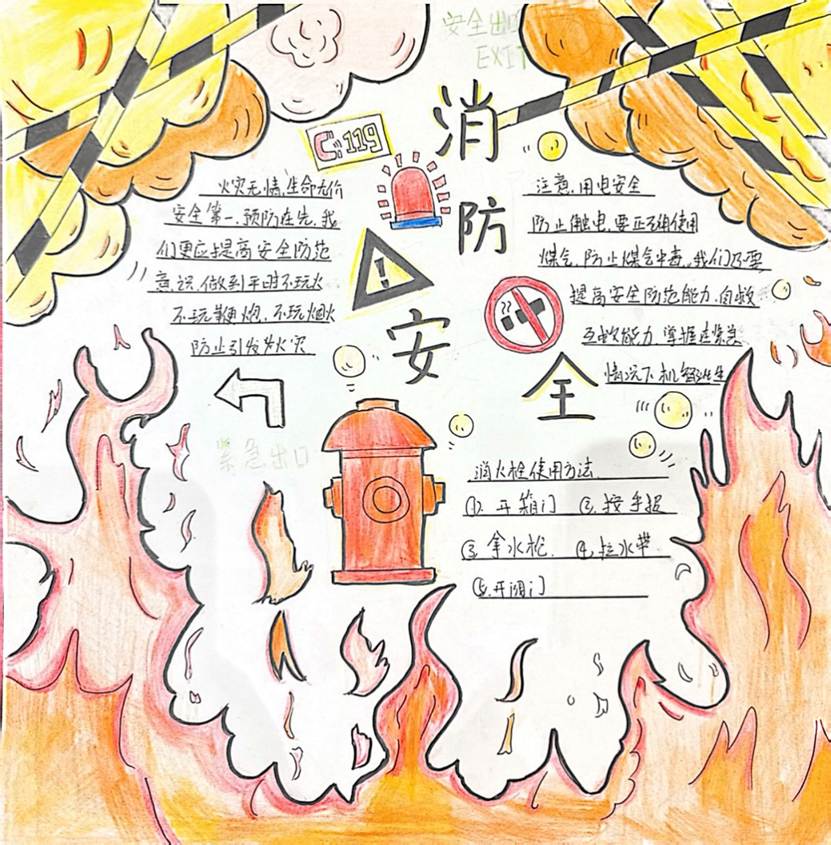 安全出口
EXIT
119
消
防
安
全
火灾无情,生命无价
安全第一,预防在先,我
们更应提高安全防范
意识,做到平时不玩火
不玩鞭炮,不玩烟火
防止引发火灾
注意用电安全
防止触电,要正确使用
煤气,防止煤气中毒,我们还要
提高安全防范能力,自救
互救能力,掌握在紧急
情况下机智逃生
紧急出口
消火栓使用方法
①.开箱门 ②.按手报
③拿水枪. ④.拉水带
⑤.开阀门